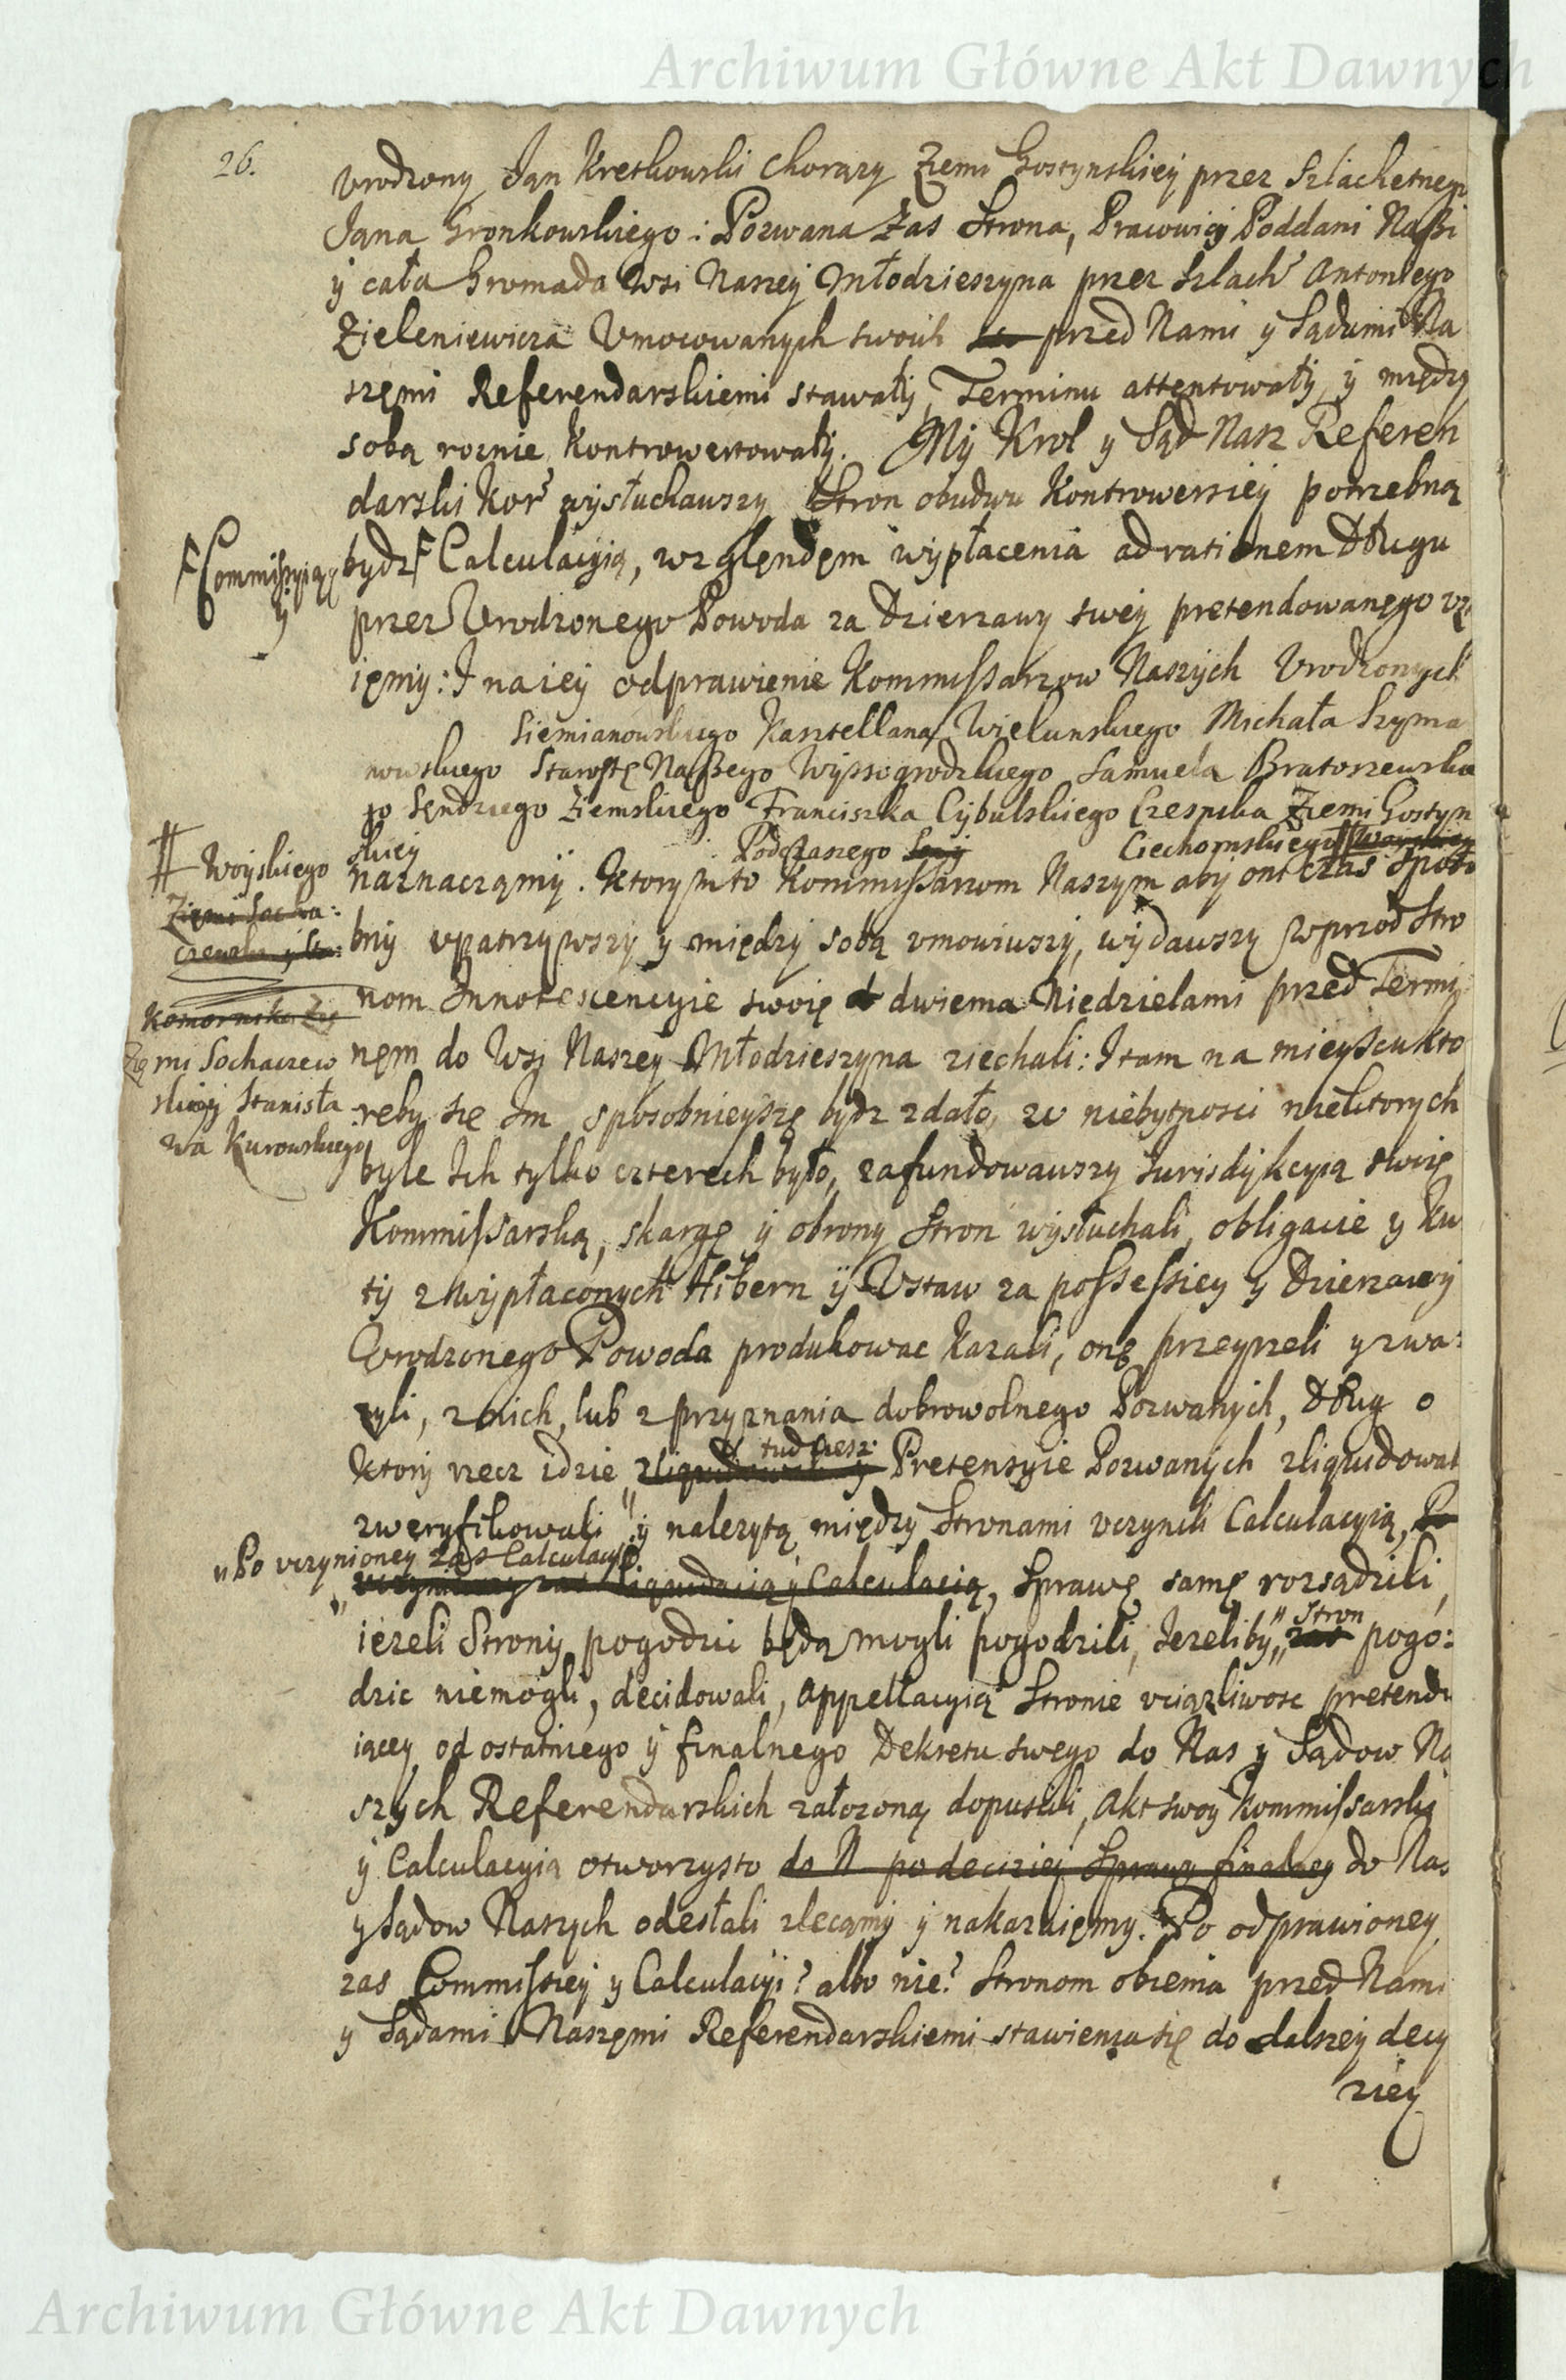 Archiwum Główne Akt Dawnych
26.
Vrodzony Jan Kretkowski Chorązy Ziemi Gostynskiey przez Szlachetnego
Jana Gronkowskiego: Pozwana zas Strona, Pracowici Poddani Naßi
y cała Gromada Wsi Naszey Młodzieszyna przez Szlach Antoniego
Zieleniewicza Vmocowanych swoich przed Nami y Sądami Na
szęmi Referendarskiemi stawały, Terminu attentowały y między
sobą roznie kontrowertowały. My Krol y Sąd Nasz Referen
darski Kor wysłuchawszy Stron obudwu Kontrowersiey potrzebną
Commissyią y
bydz Calculacyią, względęm wypłacenia ad rationem Długu
przez Vrodzonego Powoda za Dzierzawy swey pretendowanego vz
ięmy: I na iey odprawienie Kommissarzow Naszych Vrodzonych
Siemianowskiego Kasztellana Wielunskiego Michała Szyma
nowskiego Starostę Naßego Wyssogrodzkiego Samuela Bratoszewskie
go Sęndziego Ziemskiego Franciszka Cybulskiego Czesnika Ziemi Gostyn
skiey Podczaszego Ciechomskiego
# Woyskiego
naznaczamy. Ktorym to Kommissarzom Naszym aby oni czas sposo
Ziemi Socha:
czewski
bny vpatrzywszy y między sobą vmowiwszy, wydawszy wprzod Stro
nom Innotescencyie swoię dwiema Niedzielami przed Termi
Komornika
Ziemi Sochaczew
nęm do Wsi Naszey Młodzieszyna ziechali: I tam na mieyscu kto
skiey Stanisła
reby się Im sposobnieyszę bydz zdało, w niebytnosci niektorych
wa Kurowskiego
byle Ich tylko czterech było, zafundowawszy Jurisdykcyią swoię
Kommissarską, skargę y obrony Stron wysłuchali, obligacie y Kw
ty z wypłaconych Hibern y Vstaw za possessiey y Dzierzawy
Vrodzonego Powoda produkowac kazali, onę przeyrzeli y zwa:
zyli, z nich, lub z przyznania dobrowolnego Pozwanych, Dług o
ktory rzecz idzie tudziesz Pretensyie Pozwanych zliquidowal
zweryfikowali y nalezytą między Stronami vczynili Calculacyią,
Po vczynioney zas Calculacyi
liquidacią y Calculacią, Sprawę samę rozsądzili,
iezeli Strony pogodzic będą mogli pogodzili, Jezeliby Stron zas pogo:
dzic niemogli, decidowali, appellacyią Stronie vciązliwosc pretendu
iącey od ostatniego y finalnego Dekretu swego do Nas y Sądow Na
szych Referendarskich załozoną dopuscili, Akt swoy Kommissarski
y Calculacyią otworzysto do N po deciziey Sprawy finalney do Nas
y Sądow Naszych odesłali zlecamy y nakazuięmy. Po odprawioney
zas Commissiey y Calculacyi? albo nie? Stronom obiema przed Nami
y Sądami Naszęmi Referendarskiemi stawienia się do dalszey decy
ziey
Archiwum Główne Akt Dawnych